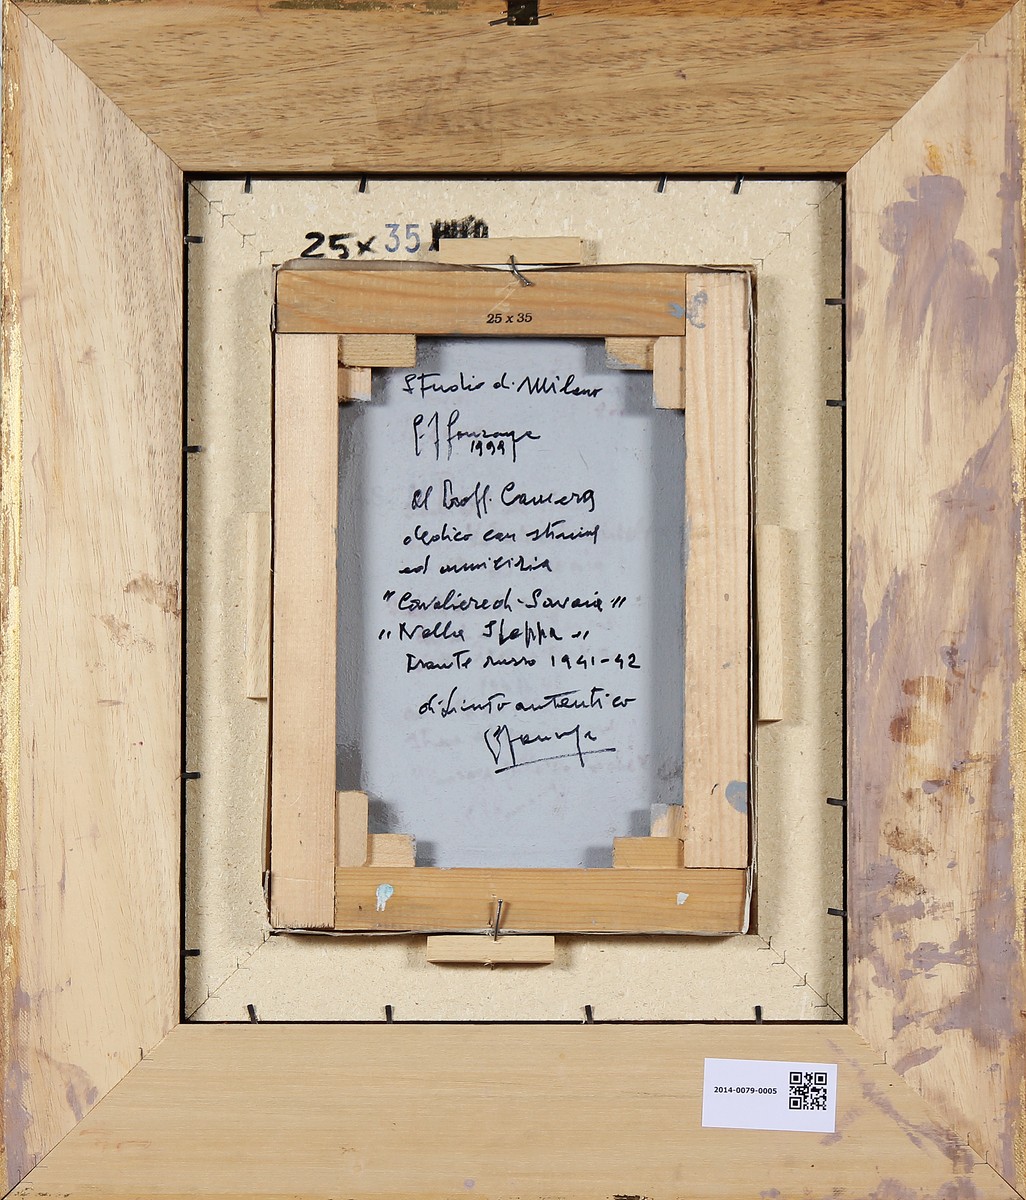 25 x 35
25 x 35
Studio di Milano
G F Gonzaga
1999
Al Proff. Camera
dedico con stima
ed amicizia
"Cavaliere di Savoia"
"Nella Steppa"
Fronte russo 1941-42
dipinto autentico
Gonzaga
2014-0079-0005